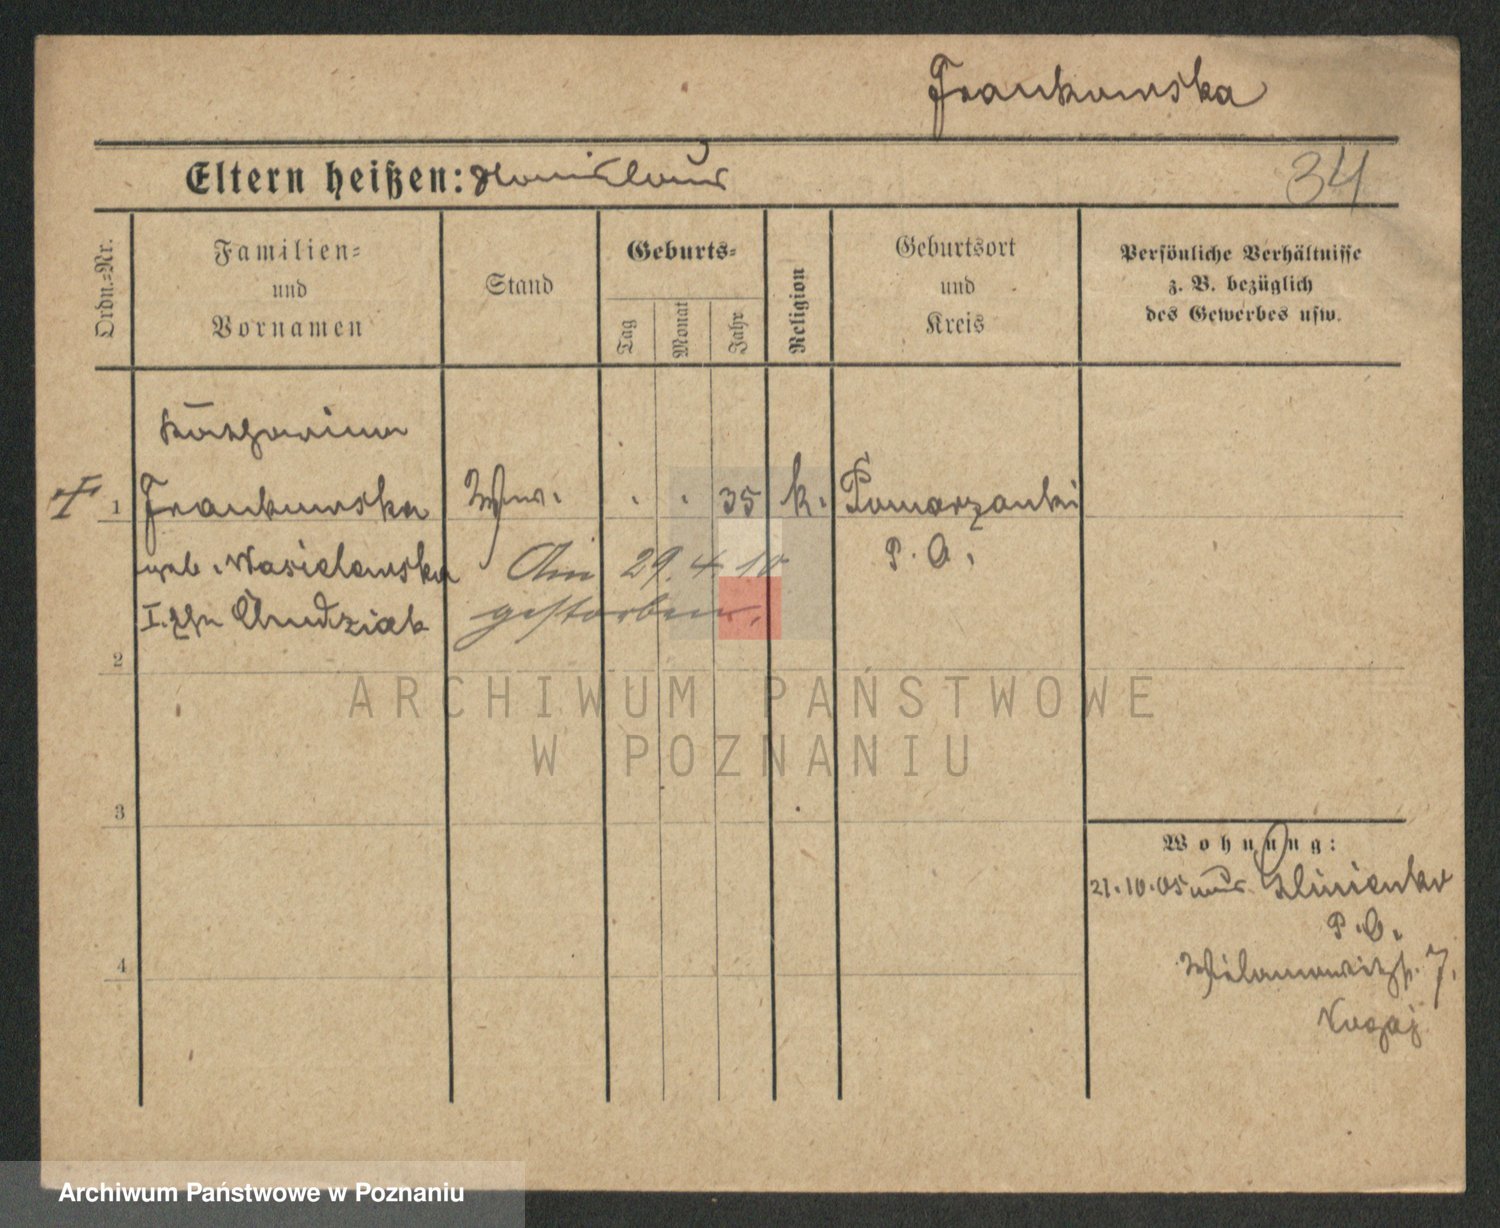 Frankowska
Eltern heißen: Stanislaus
34
Ordn.-Nr.
Familien-
und
Vornamen
Stand
Geburts-
Tag
Monat
Jahr
Religion
Geburtsort
und
Kreis
Persönliche Verhältnisse
z. B. bezüglich
des Gewerbes usw.
Katharina
1 Frankowska Ww. 35 k. Pomarzanki
geb. Wasielewska Am 29. 4 10 P. O.
I. Ehe Andziak gestorben.
2
3
4
ARCHIWUM PAŃSTWOWE
W POZNANIU
Wohnung:
21.10.05 aus Glinienko
P. O.
7.
Archiwum Państwowe w Poznaniu